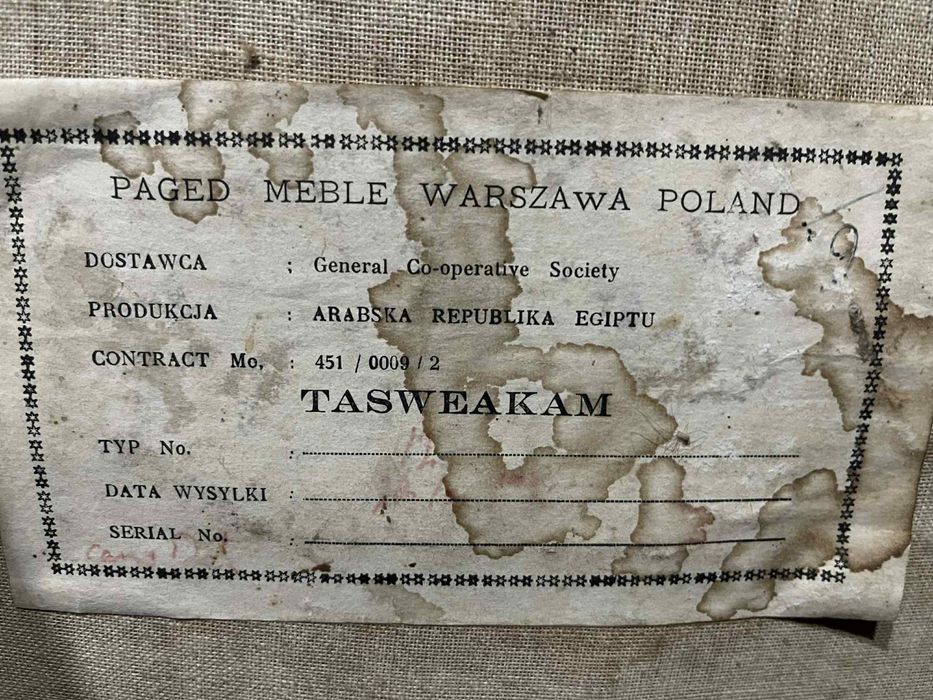 PAGED MEBLE WARSZAWA POLAND
DOSTAWCA ; General Co-operative Society
PRODUKCJA : ARABSKA REPUBLIKA EGIPTU
CONTRACT Mo, : 451 / 0009 / 2
TASWEAKAM
TYP No. :
DATA WYSYLKI :
SERIAL No. :